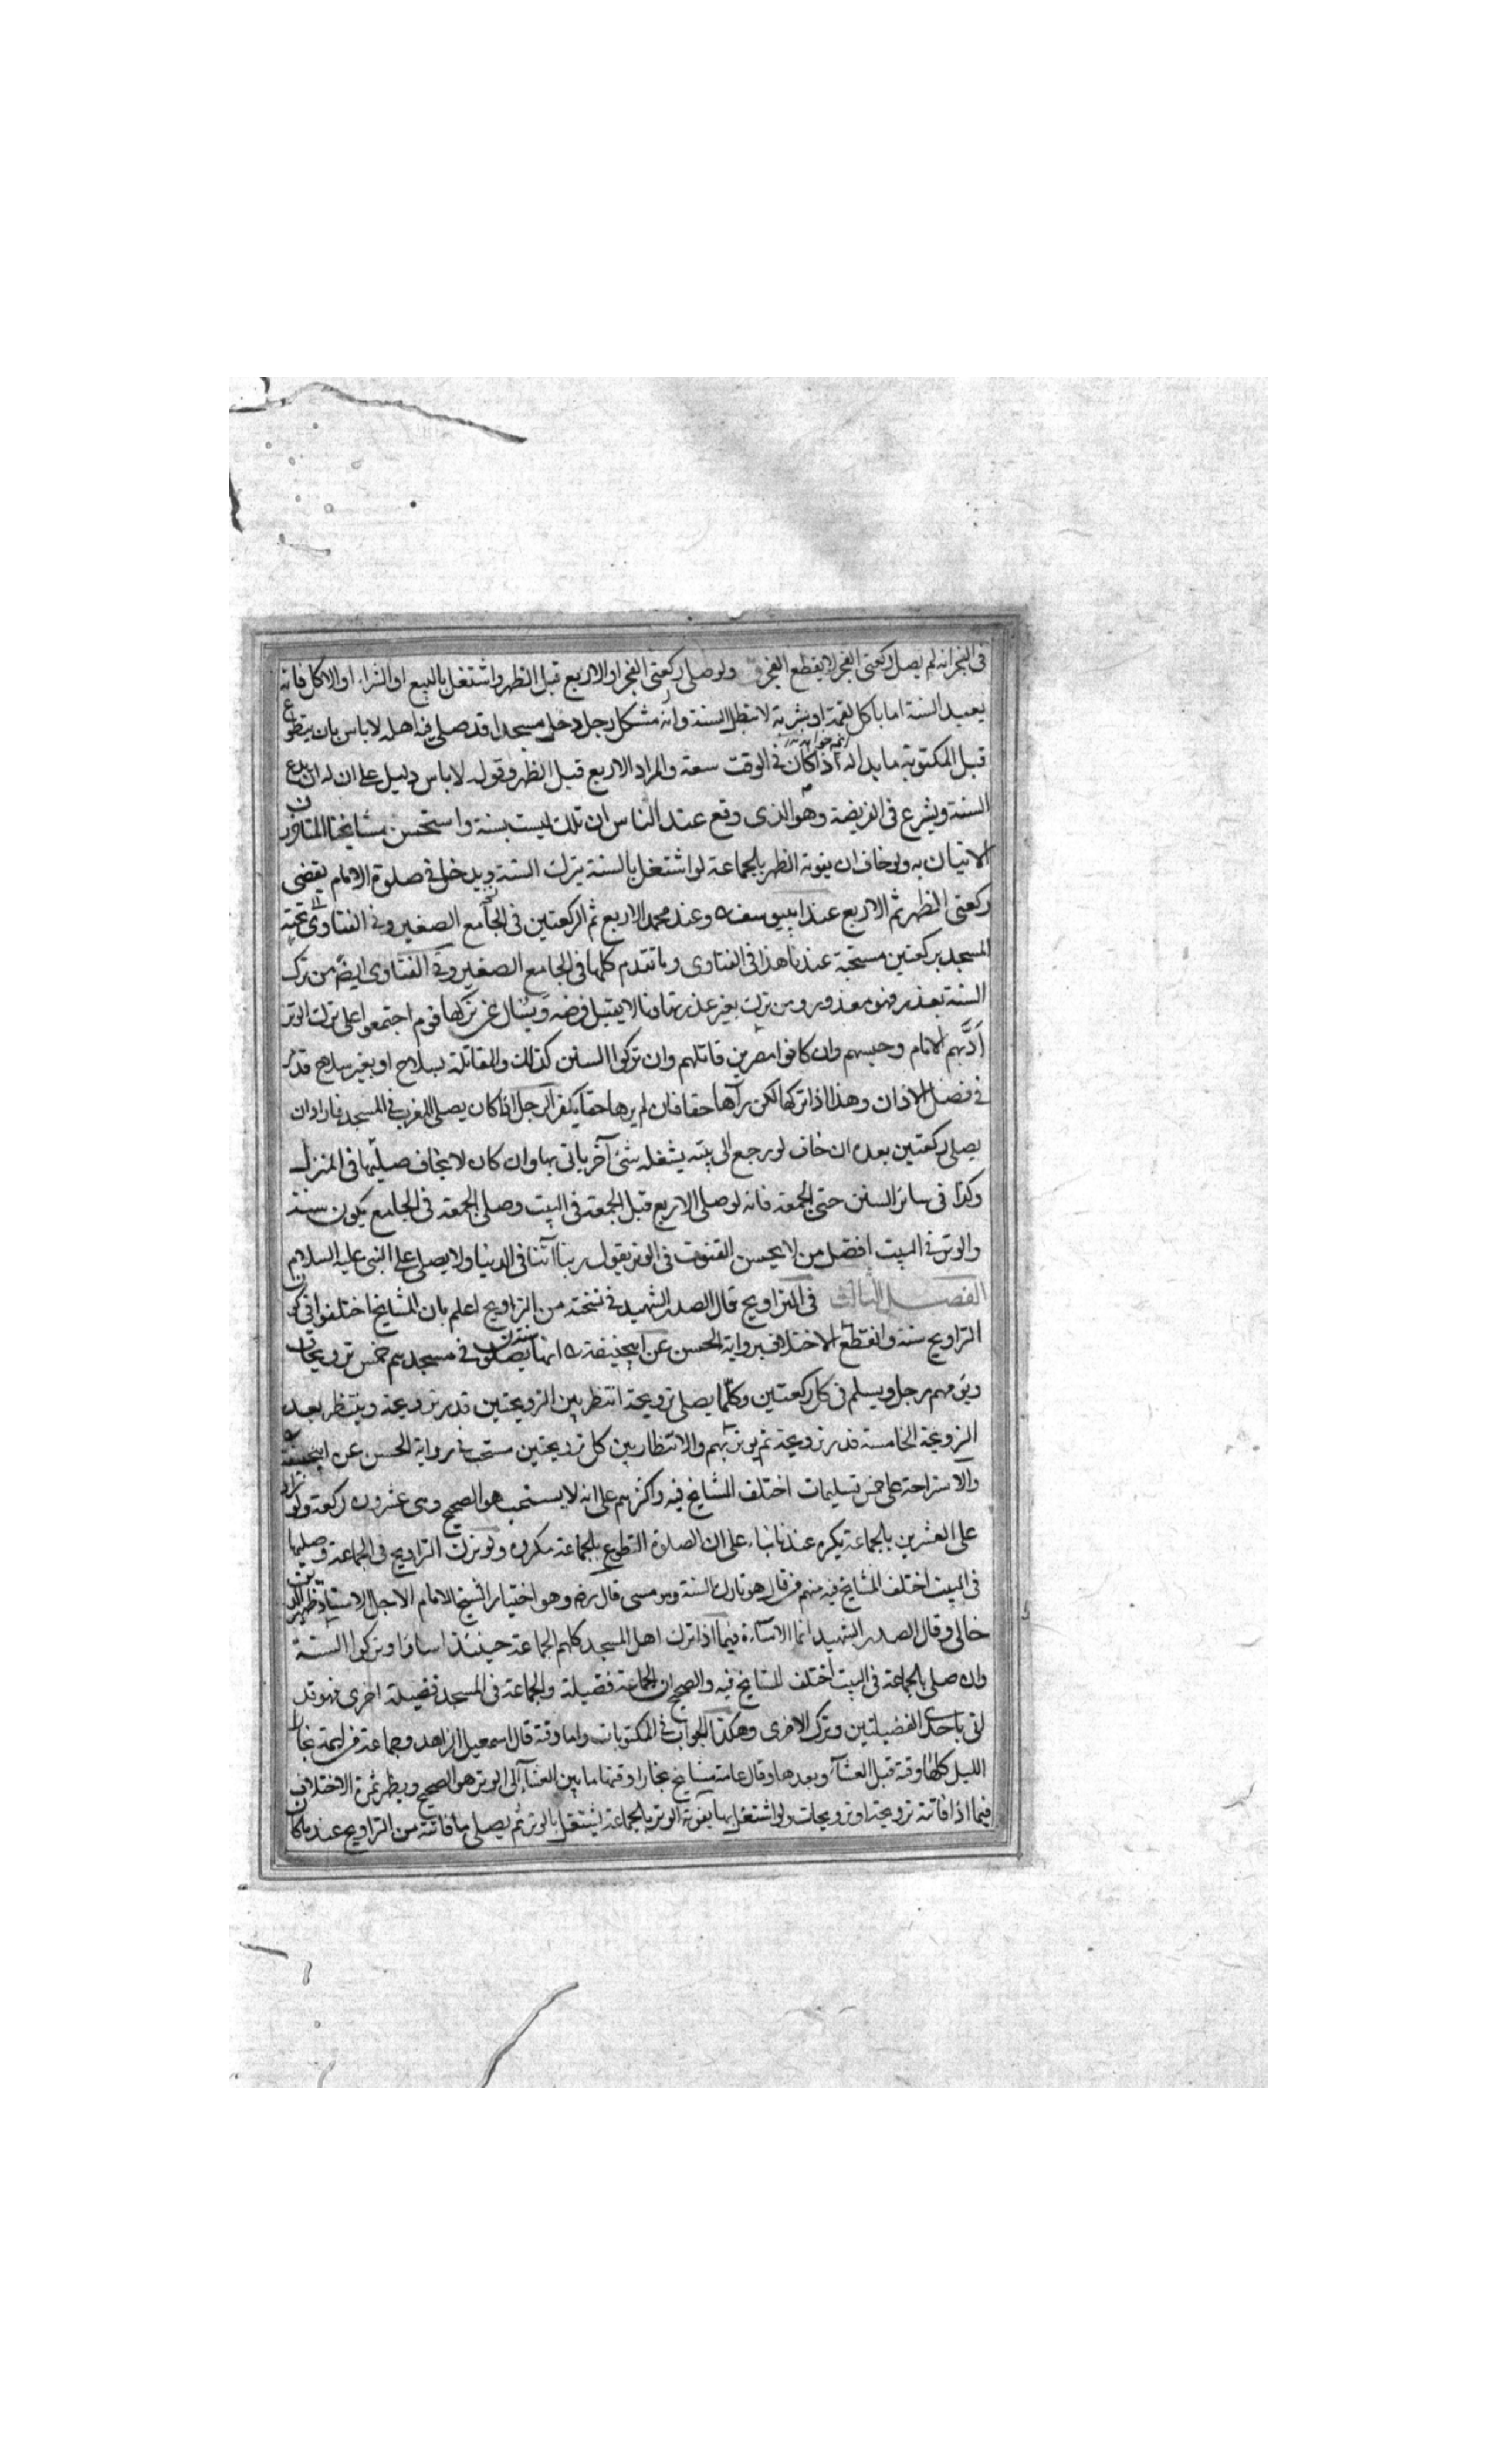 فى الفجر انه لم يصل ركعتى الفجر لا يقطع الفجر ولو صلى ركعتى الفجر او الاربع قبل الظهر واشتغل بالبيع او الشراء او الاكل فانه
يعيد السنة اما باكل لقمة او بشربة لا تبطل السنة وانه مشكل رجل دخل مسجدا قد صلى فيه اهله لا باس بان يتطوع
قبل المكتوبة ما بدا له اذا كان فى الوقت سعة والمراد الاربع قبل الظهر وقوله لا باس دليل على ان له ان يدع
السنة ويشرع فى الفريضة وهو الذى وقع عند الناس ان تلك ليست بسنة واستحسن مشايخنا المتاخرون
الاتيان به ولو خاف ان يفوته الظهر بالجماعة لو اشتغل بالسنة يترك السنة ويدخل فى صلوة الامام يقضى
ركعتى الظهر ثم الاربع عند ابييوسف وعند محمد الاربع ثم الركعتين فى الجامع الصغير وفى الفتاوى تحية
المسجد بركعتين مستحبة عندنا هذا فى الفتاوى وما تقدم كلها فى الجامع الصغير وفى الفتاوى ايضا من ترك
السنة بعذر فهو معذور ومن ترك بغير عذر تهاونا لا يقبل فرضه ويسال عن تركها قوم اجتمعوا على ترك الوتر
ادبهم الامام وحبسهم وان كانوا مصرين قاتلهم وان تركوا السنن كذلك والمقاتلة بسلاح او بغير سلاح قد مر
فى فصل الاذان وهذا اذا تركها لكن رآها حقا فان لم يرها حقا يكفر الرجل اذا كان يصلى المغرب فى المسجد فاراد ان
يصلى ركعتين بعده ان خاف لو رجع الى بيته يشغله شئ آخر ياتى بها وان كان لا يخاف صليها فى المنزل
وكذا فى سائر السنن حتى الجمعة فانه لو صلى الاربع قبل الجمعة فى البيت وصلى الجمعة فى الجامع يكون سنة
والوتر فى البيت افضل من لا يحسن القنوت فى الوتر يقول ربنا آتنا فى الدنيا ولا يصلى على النبى عليه السلام
الفصل الثالث فى التراويح قال الصدر الشهيد فى نسخته من التراويح اعلم بان المشايخ اختلفوا فى كون
التراويح سنة وانقطع الاختلاف برواية الحسن عن ابيحنيفة انها سنة يصلون فى مسجدهم خمس ترويحات
ويؤمهم رجل ويسلم فى كل ركعتين وكلما يصلى ترويحة انتظر بين الترويحتين قدر ترويحة وينتظر بعد
الترويحة الخامسة قدر ترويحة ثم يوتر بهم والانتظار بين كل ترويحتين مستحب فى رواية الحسن عن ابيحنيفة
والاستراحة على خمس تسليمات اختلف المشايخ فيه واكثرهم على انه لا يستحب هو الصحيح وهى عشرون ركعة ولو زاد
على العشرين بالجماعة يكره عندنا بناء على ان الصلاة التطوع بالجماعة مكروه ولو ترك التراويح فى الجماعة وصليها
فى البيت اختلف المشايخ فيه منهم من قال هو تارك السنة وهو مسى قال رضه وهو اختيار الشيخ الامام الاجل الاستاد ظهير الدين
خالى وقال الصدر الشهيد انما الاساءة فيما اذا ترك اهل المسجد كلهم الجماعة حينئذ اساؤا وتركوا السنة
وان صلى بالجماعة فى البيت اختلف المشايخ فيه والصحيح ان للجماعة فضيلة والجماعة فى المسجد فضيلة اخرى فهو قد
اتى باحدى الفضيلتين وترك الاخرى وهكذا الجواب فى المكتوبات واما وقته قال اسمعيل الزاهد وجماعة من ايمة بخارا
الليل كلها وقته قبل العشآ وبعدها وقال عامة مشايخ بخارا وقتها ما بين العشآ الى الوتر هو الصحيح ويظهر ثمرة الاختلاف
فيما اذا فاتته ترويحة او ترويحات ولو اشتغل بها يفوته الوتر بالجماعة يشتغل بالوتر ثم يصلى ما فاتته من التراويح عند ما كان